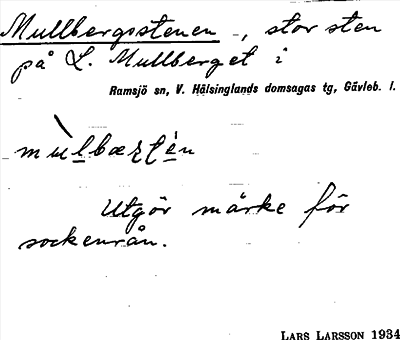 Mullbergsstenen, stor sten
på L. Mullberget i
Ramsjö sn, V. Hälsinglands domsagas tg, Gävleb. l.
Utgör märke för
sockenrån.
LARS LARSSON 1934